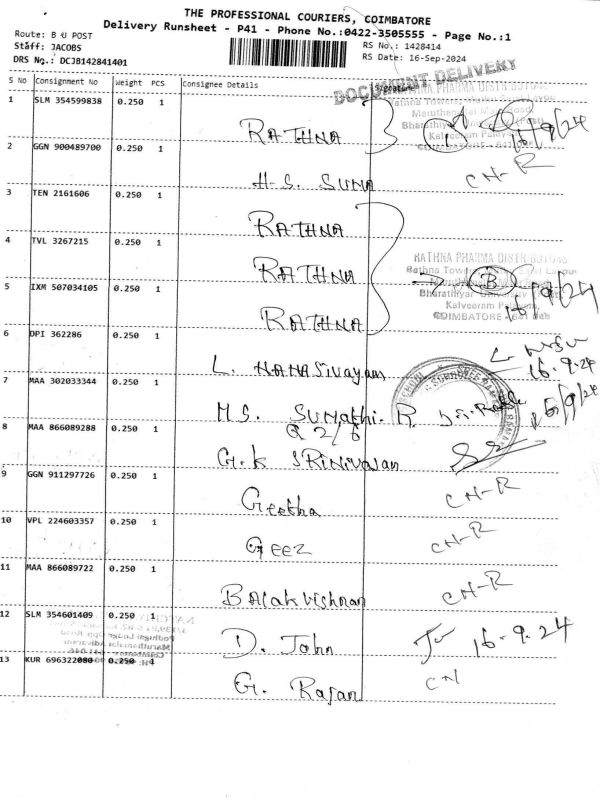 THE PROFESSIONAL COURIERS, COIMBATORE
Delivery Runsheet - P41 - Phone No.:0422-3505555 - Page No.:1
Route: B U POST
Staff: JACOBS
DRS No.: DCJB142841401
RS No.: 1428414
RS Date: 16-Sep-2024
DOCUMENT DELIVERY
S NO Consignment No Weight PCS Consignee Details Signature
1 SLM 354599838 0.250 1 RATHNA
2 GGN 900489700 0.250 1 H.S. SUNA CN-R
3 TEN 2161606 0.250 1 RATHNA
4 TVL 3267215 0.250 1 RATHNA
RATHNA PHARMA DISTRIBUTORS
Bharathiyar
Kalveeram
COIMBATORE
B
5 IXM 507034105 0.250 1 RATHNA
6 DPI 362286 0.250 1 L. NAMASivayam 16-9-24
7 MAA 302033344 0.250 1 M.S. SUMAthi. R
8 MAA 866089288 0.250 1 G.K SRINIVASAN
9 GGN 911297726 0.250 1 Geetha CN-R
10 VPL 224603357 0.250 1 Geez CN-R
11 MAA 866089722 0.250 1 BAlakrishnan CN-R
12 SLM 354601409 0.250 1 D. John 16-9-24
13 KUR 696322080 0.250 1 G. Rajan CN